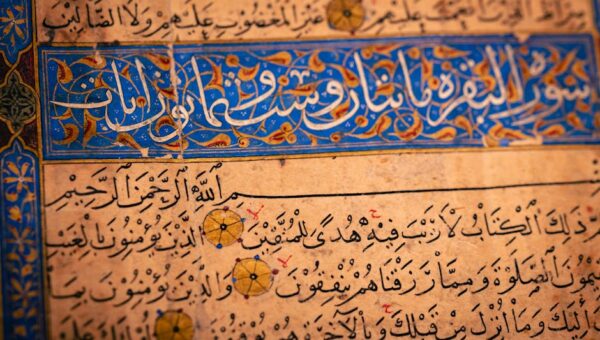 صِرَاطَ الَّذِينَ أَنْعَمْتَ عَلَيْهِمْ غَيْرِ الْمَغْضُوبِ عَلَيْهِمْ وَلَا الضَّالِّينَ
سورة البقرة مايتان وست وثمانون ايات
بِسْمِ اللَّهِ الرَّحْمَنِ الرَّحِيمِ
ذَلِكَ الْكِتَابُ لَا رَيْبَ فِيهِ هُدًى لِلْمُتَّقِينَ الَّذِينَ يُؤْمِنُونَ بِالْغَيْبِ
يمُونَ الصَّلَوةَ وَمِمَّا رَزَقْنَاهُمْ يُنْفِقُونَ وَالَّذِينَ يُؤْمِنُونَ بِمَا
إِلَيْكَ وَمَا أُنْزِلَ مِنْ قَبْلِكَ وَبِالْآخِرَةِ هُمْ يُوقِنُونَ